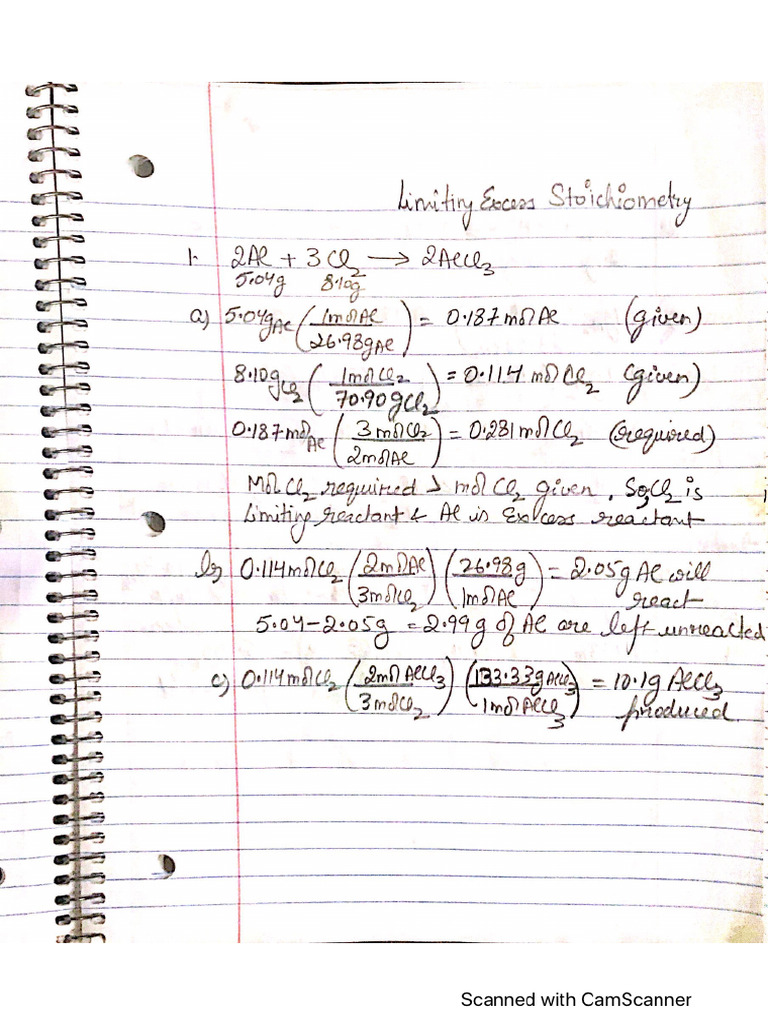 Limiting Excess Stoichiometry
1. 2Al + 3Cl₂ → 2AlCl₃
5.04g 8.10g
a) 5.04g Al (1mol Al / 26.98g Al) = 0.187 mol Al (given)
8.10g Cl₂ (1mol Cl₂ / 70.90g Cl₂) = 0.114 mol Cl₂ (given)
0.187 mol Al (3 mol Cl₂ / 2 mol Al) = 0.281 mol Cl₂ (required)
Mol Cl₂ required > mol Cl₂ given, So, Cl₂ is
Limiting reactant & Al is Excess reactant
b) 0.114 mol Cl₂ (2 mol Al / 3 mol Cl₂) (26.98g / 1 mol Al) = 2.05g Al will
react
5.04 – 2.05g = 2.99g of Al are left unreacted
c) 0.114 mol Cl₂ (2 mol AlCl₃ / 3 mol Cl₂) (133.33g AlCl₃ / 1 mol AlCl₃) = 10.1g AlCl₃
produced
Scanned with CamScanner